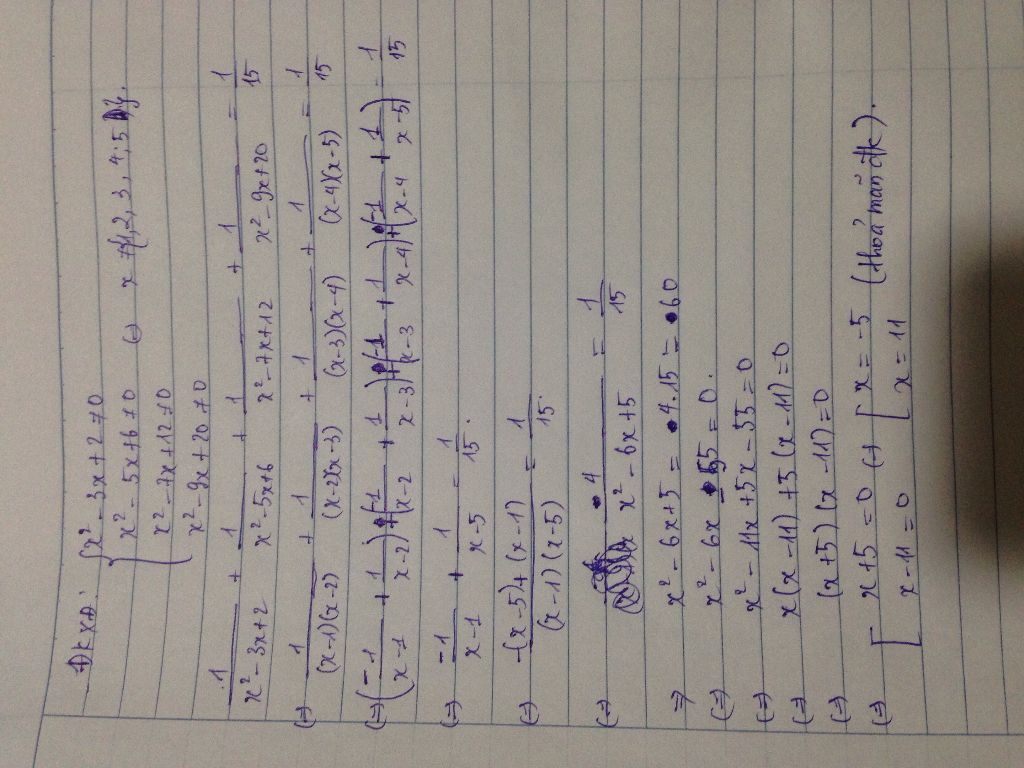 ĐKXĐ: { x² - 3x + 2 ≠ 0
x² - 5x + 6 ≠ 0 (=) x ≠ {1, 2, 3, 4; 5}.
x² - 7x + 12 ≠ 0
x² - 9x + 20 ≠ 0
1/(x² - 3x + 2) + 1/(x² - 5x + 6) + 1/(x² - 7x + 12) + 1/(x² - 9x + 20) = 1/15
(=) 1/((x-1)(x-2)) + 1/((x-2)(x-3)) + 1/((x-3)(x-4)) + 1/((x-4)(x-5)) = 1/15
(=) (-1/(x-1) + 1/(x-2)) + (-1/(x-2) + 1/(x-3)) + (-1/(x-3) + 1/(x-4)) + (-1/(x-4) + 1/(x-5)) = 1/15
(=) -1/(x-1) + 1/(x-5) = 1/15.
(=) (-(x-5) + (x-1))/((x-1)(x-5)) = 1/15.
(=) 4/(x² - 6x + 5) = 1/15
=) x² - 6x + 5 = 4.15 = 60
(=) x² - 6x - 55 = 0.
(=) x² - 11x + 5x - 55 = 0
(=) x(x - 11) + 5(x - 11) = 0
(=) (x + 5)(x - 11) = 0
(=) [ x + 5 = 0 (=) [ x = -5 (thoả mãn đk).
x - 11 = 0 x = 11